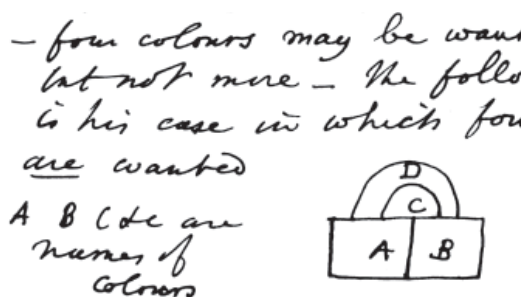 - four colours may be wan
but not more - the follo
is his case in which fou
are wanted
A B C &c are
names of
colours
D
C
A B